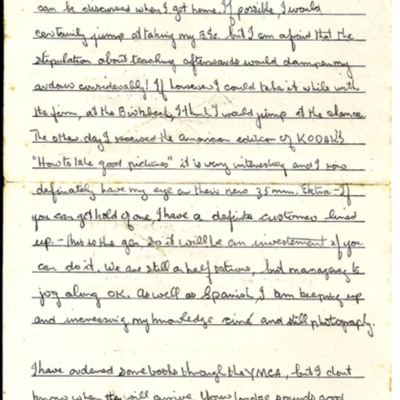 can be discussed when I get home. If possible, I would
certainly jump at taking my B.Sc. but I am afraid that the
stipulation about teaching afterwards would dampen my
ardour considerably! If however I could take it while with
the firm, at the Birkbeck, I think I would jump at the chance
The other day I received the American edition of KODAK's
"How to take good pictures" it is very interesting and I now
definately have my eye on their new 35 mm. Ektra - If
you can get hold of one, I have a definite customer lined
up. - this is the gen, so it will be an investement if you
can do it. We are still on half rations, but managing to
jog along OK. As well as Spanish, I am keeping up
and increasing my knowledge ciné and still photography.
I have ordered some books through the YMCA, but I dont
know when the will arrive. Your sounds good